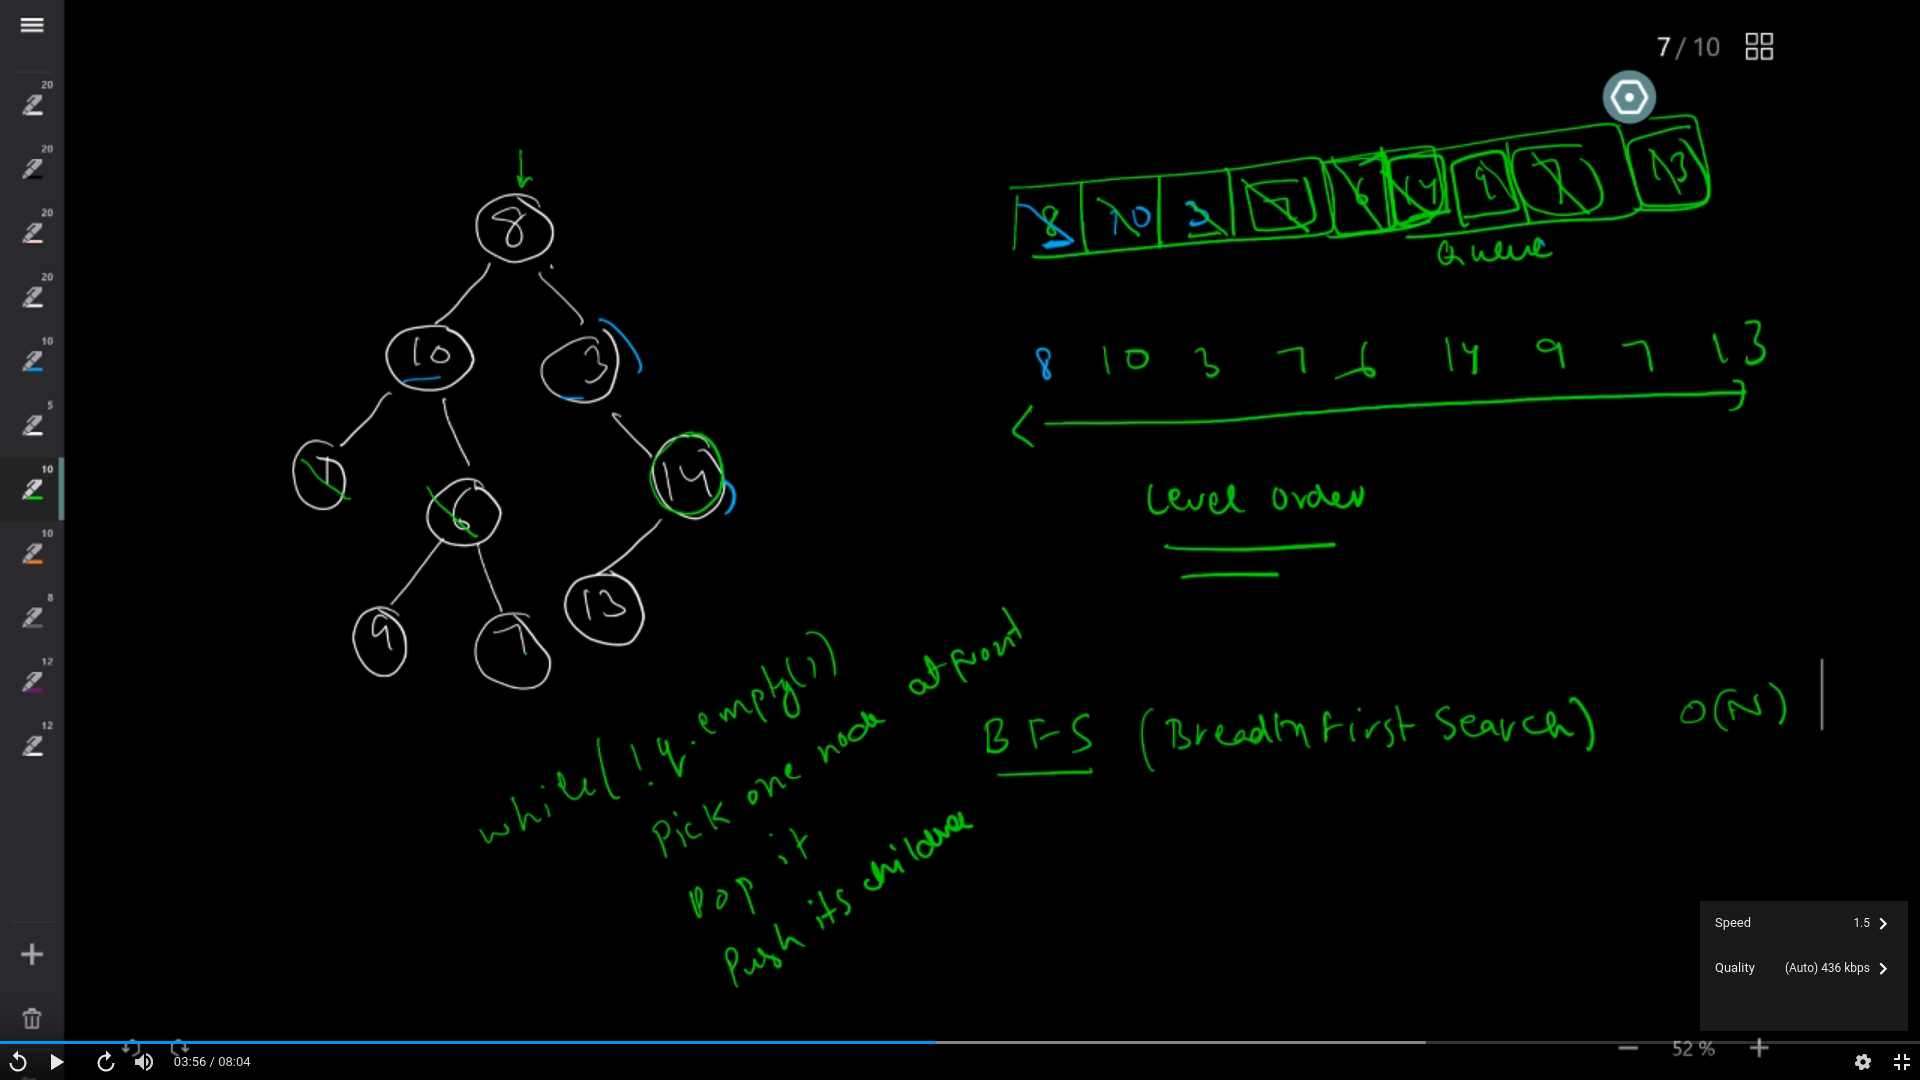 7 / 10
20
20
20
20
10
5
10
10
8
12
12
8
10 3
14
6
13
9 7
8 10 3 7 6 14 9 7 13
Queue
8 10 3 7 6 14 9 7 13
Level order
while(!q.empty())
Pick one node at front
POP it
Push its
BFS (Breadth First Search) O(N)
Speed 1.5
Quality (Auto) 436 kbps
03:56 / 08:04
52 %